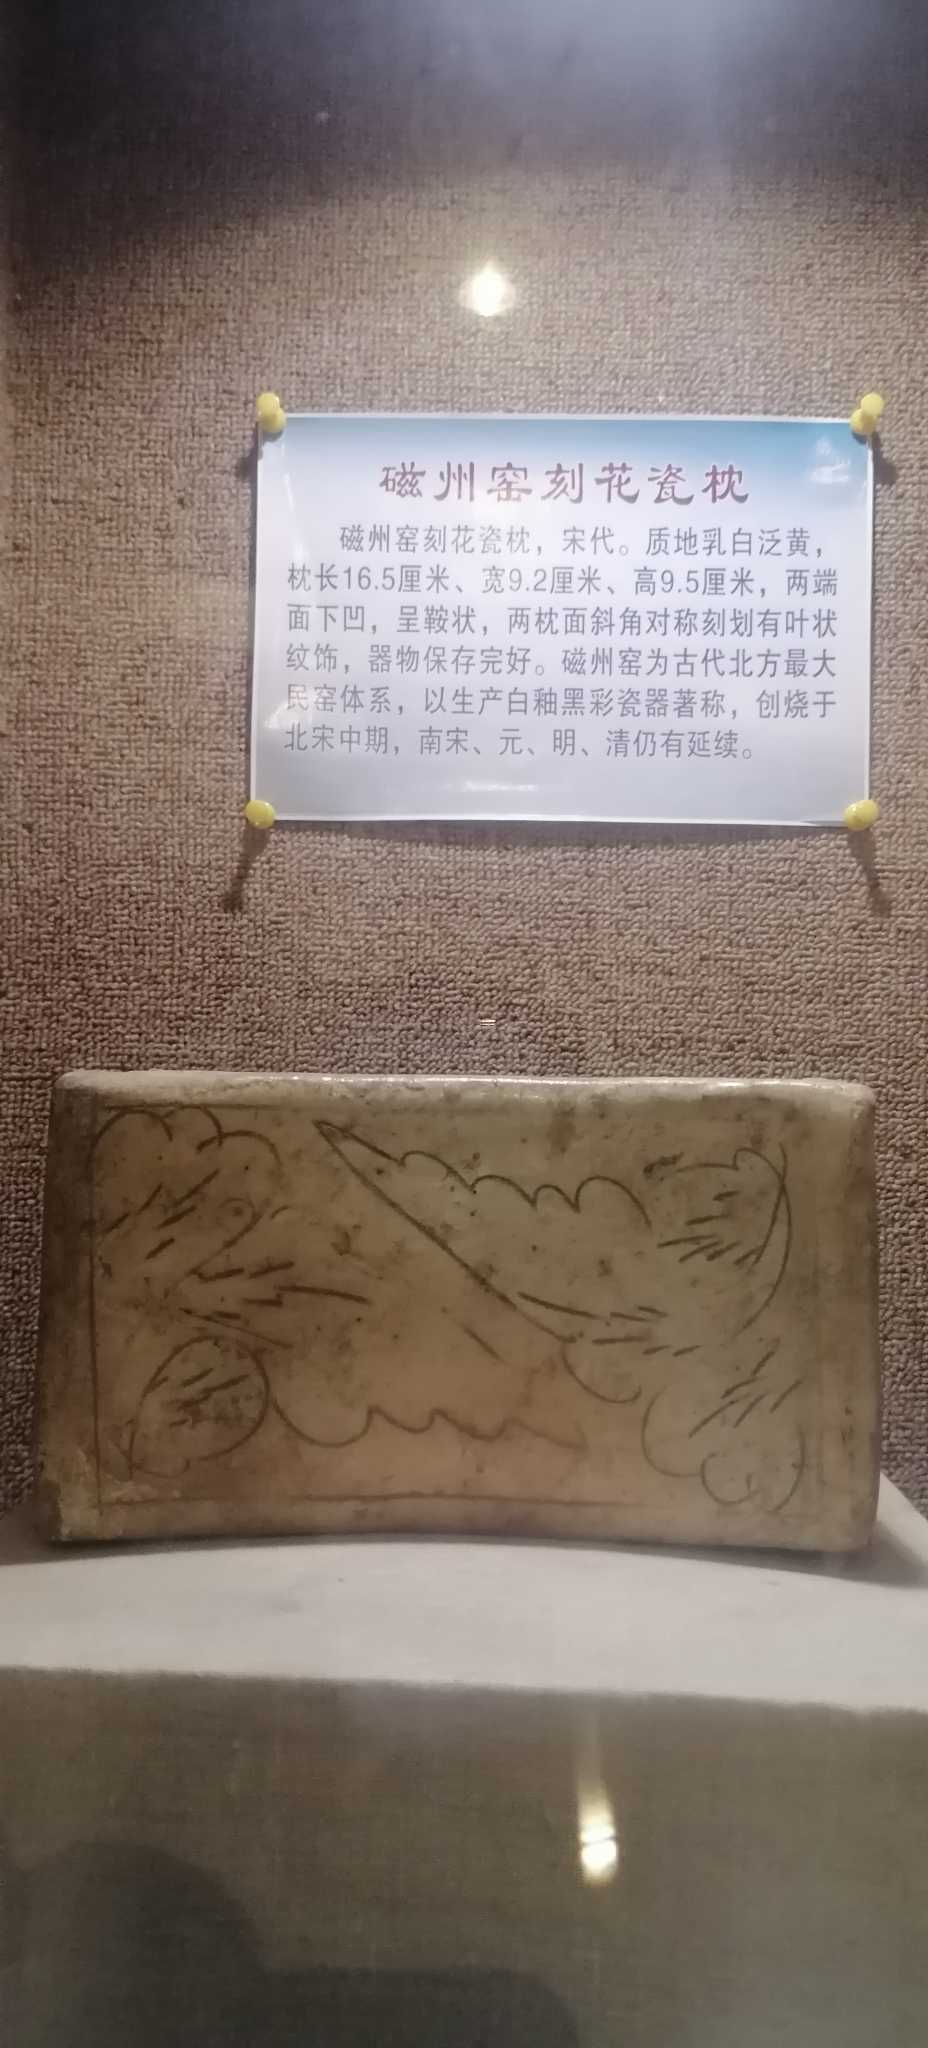 磁州窑刻花瓷枕
磁州窑刻花瓷枕，宋代。质地乳白泛黄，
枕长16.5厘米、宽9.2厘米、高9.5厘米，两端
面下凹，呈鞍状，两枕面斜角对称刻划有叶状
纹饰，器物保存完好。磁州窑为古代北方最大
民窑体系，以生产白釉黑彩瓷器著称，创烧于
北宋中期，南宋、元、明、清仍有延续。